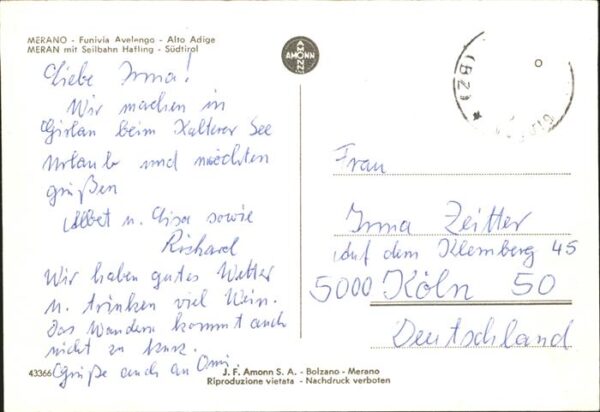 MERANO - Funivia Avelengo - Alto Adige
MERAN mit Seilbahn Hafling - Südtirol
AMONN
Liebe Irma!
Wir machen in
Girlan beim Kalterer See
Urlaub und möchten
grüßen
Albet u. Elisa sowie
Richard
Wir haben gutes Wetter
u. trinken viel Wein.
Das Wandern kommt auch
nicht zu kurz.
Grüße auch an Omi.
(BZ)
Frau
Irma Zeitter
Auf dem Klemberg 45
5000 Köln 50
Deutschland
43366
J. F. Amonn S. A. - Bolzano - Merano
Riproduzione vietata - Nachdruck verboten